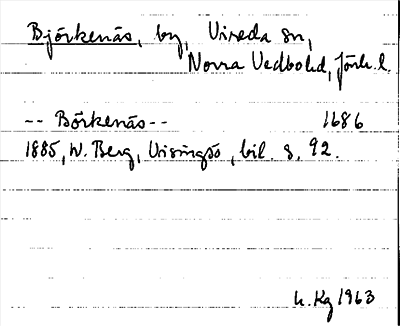 Björkenäs, by, Vireda sn,
Norra Vedbo hd, Jönk. l.
-- Börkenäs -- 1686
1885, W. Berg, Visingsö, bil. s. 92.
h. Kg 1963